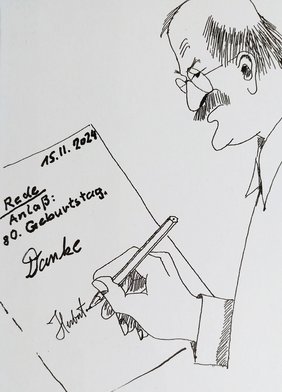 15.11.2024
Rede
Anlaß:
80. Geburtstag.
Danke
Herbert